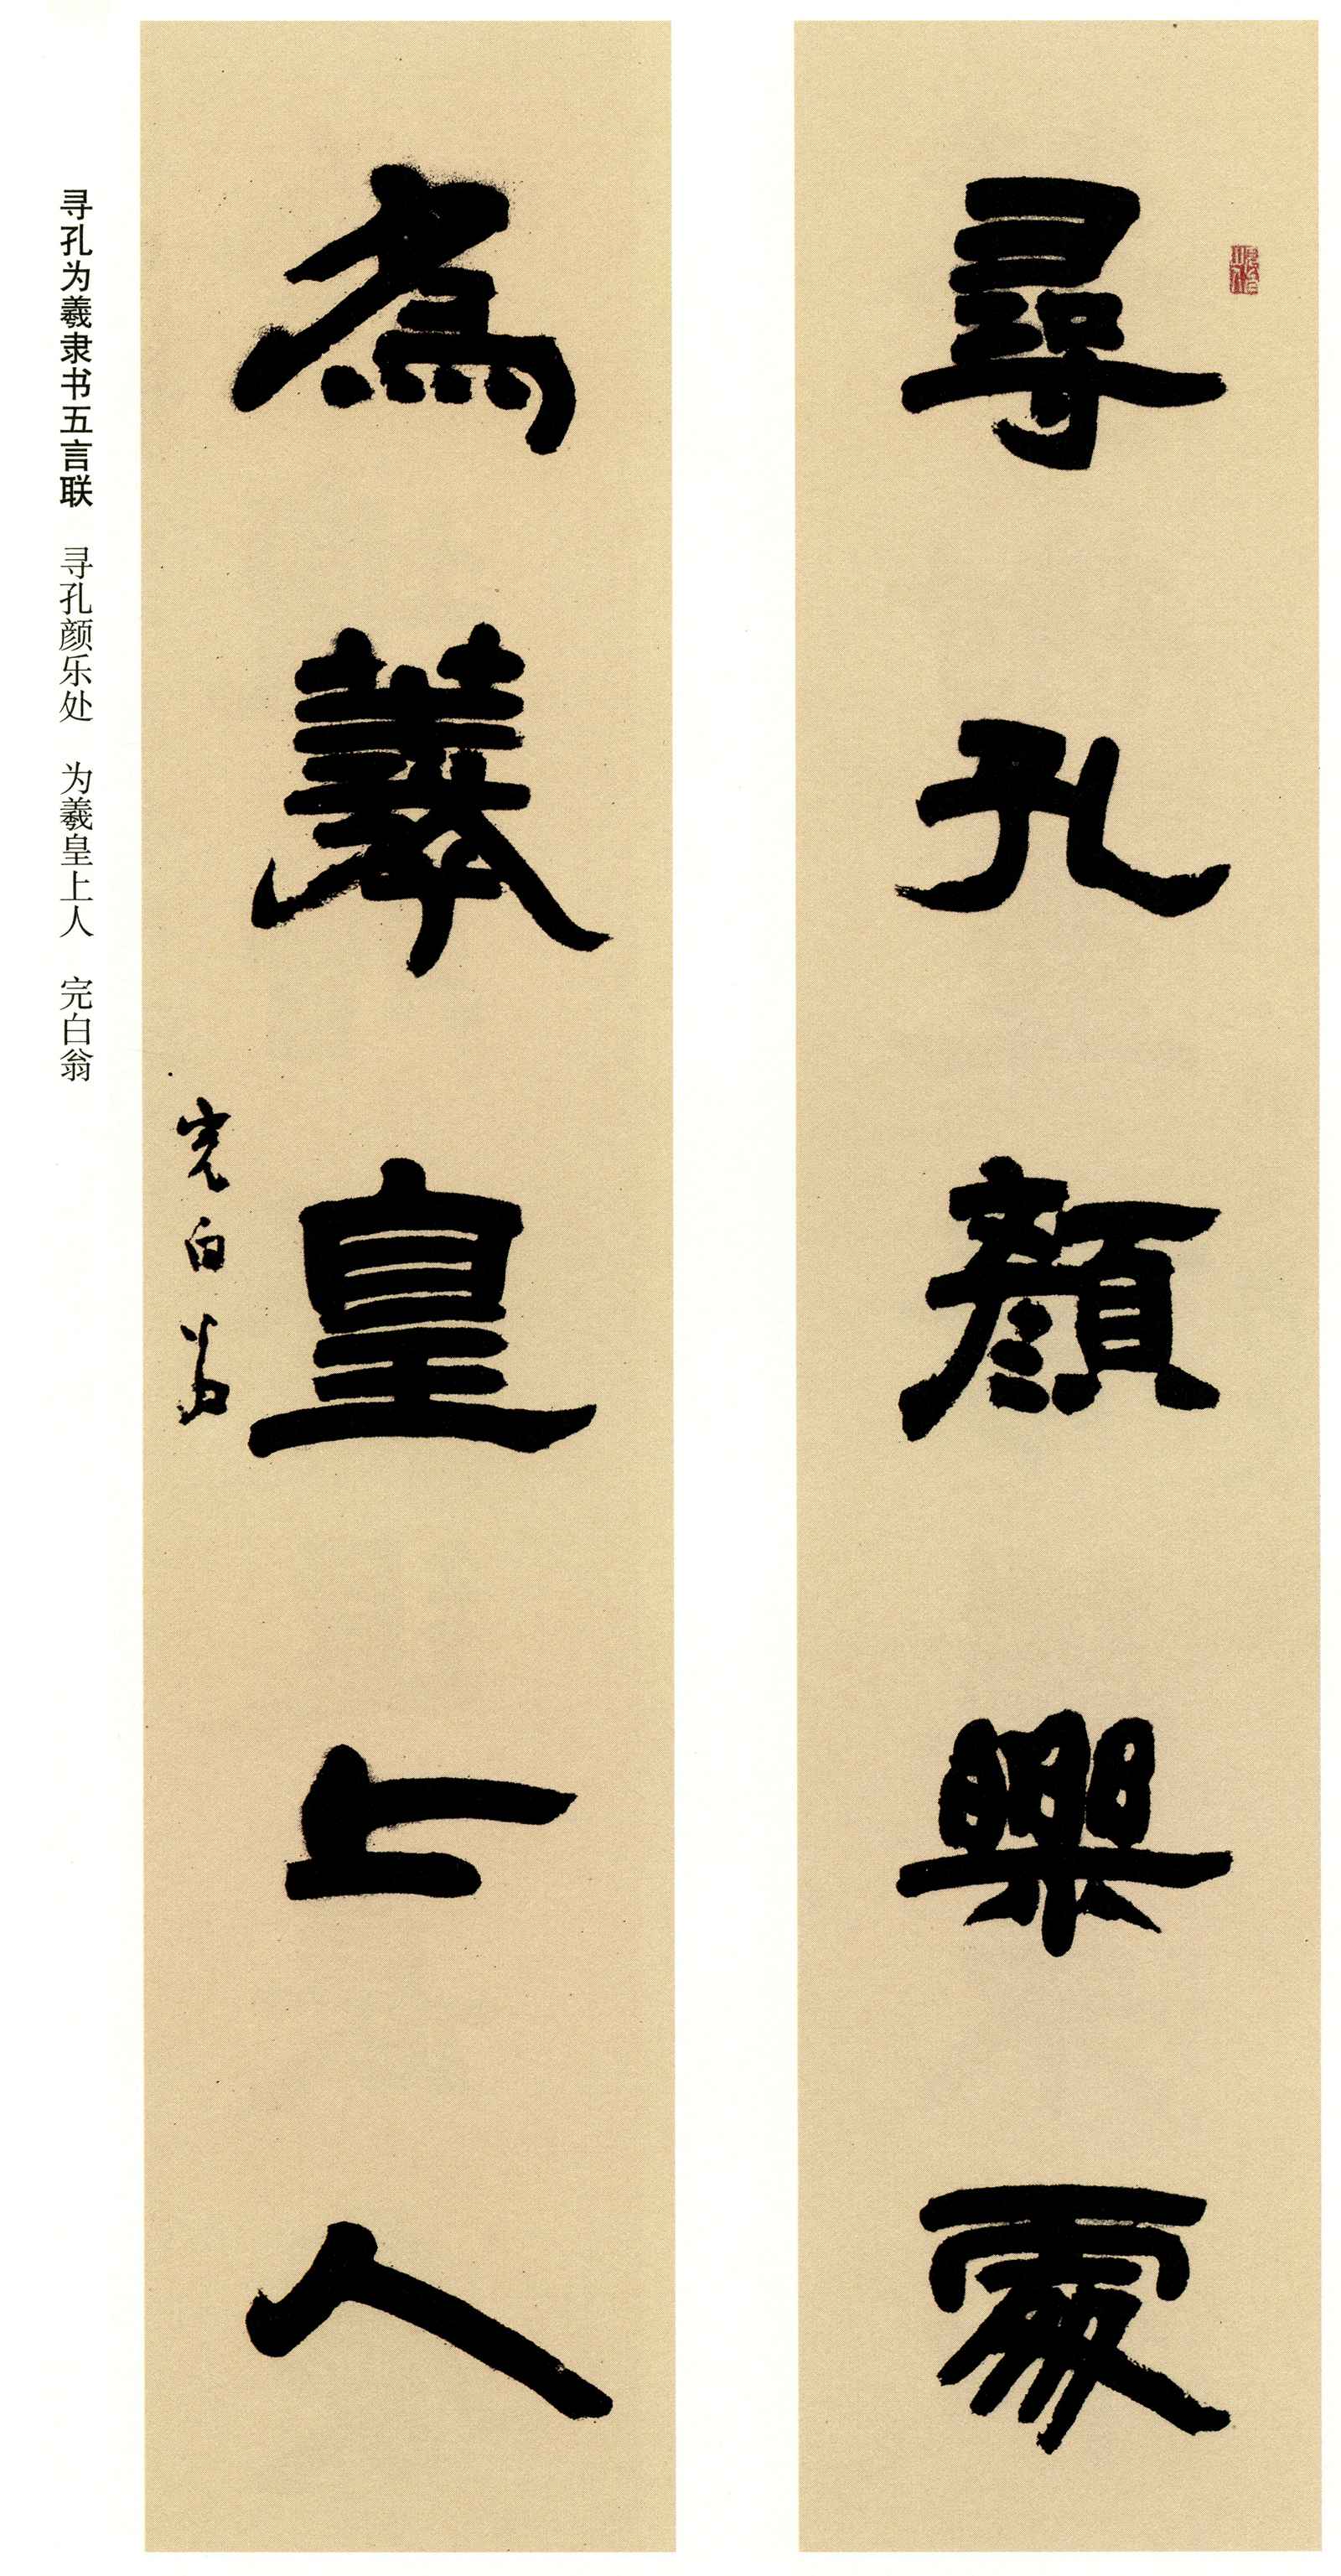 尋孔顏樂處
為羲皇上人
完白翁
寻孔为羲隶书五言联 寻孔颜乐处 为羲皇上人 完白翁